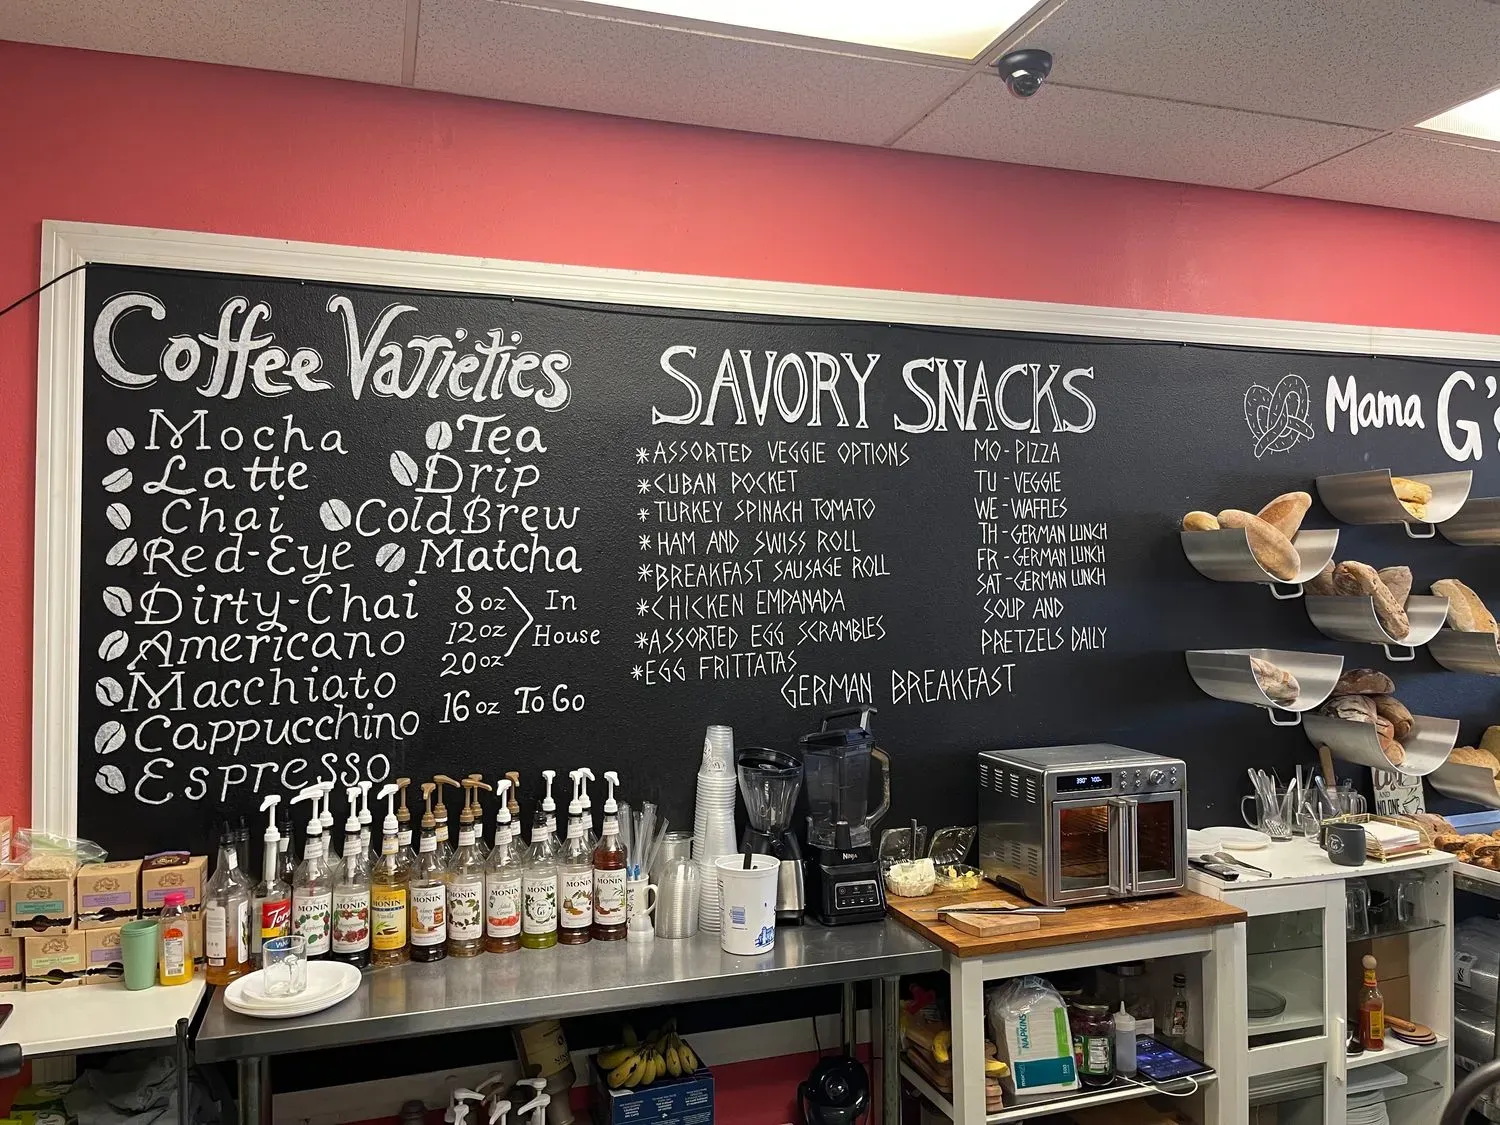 Coffee Varieties
Mocha
Latte
Chai
Red-Eye
Dirty-Chai
Americano
Macchiato
Cappucchino
Espresso
Tea
Drip
Cold Brew
Matcha
8 oz
12 oz
20 oz
In
House
16 oz To Go
SAVORY SNACKS
*ASSORTED VEGGIE OPTIONS
*CUBAN POCKET
*TURKEY SPINACH TOMATO
*HAM AND SWISS ROLL
*BREAKFAST SAUSAGE ROLL
*CHICKEN EMPANADA
*ASSORTED EGG SCRAMBLES
*EGG FRITTATAS
GERMAN BREAKFAST
MO-PIZZA
TU-VEGGIE
WE-WAFFLES
TH-GERMAN LUNCH
FR-GERMAN LUNCH
SAT-GERMAN LUNCH
SOUP AND
PRETZELS DAILY
Mama G's
NINJA
MONIN
MONIN
MONIN
Vanilla
MONIN
MONIN
MONIN
MONIN
MONIN
MONIN
NAPKINS
AND
NO ONE